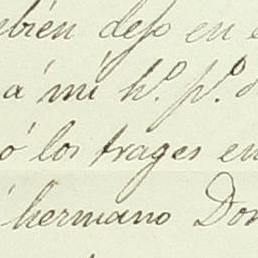 mbién dejo en e
a mi h.º p.º d
ó los trages en
hermano Don